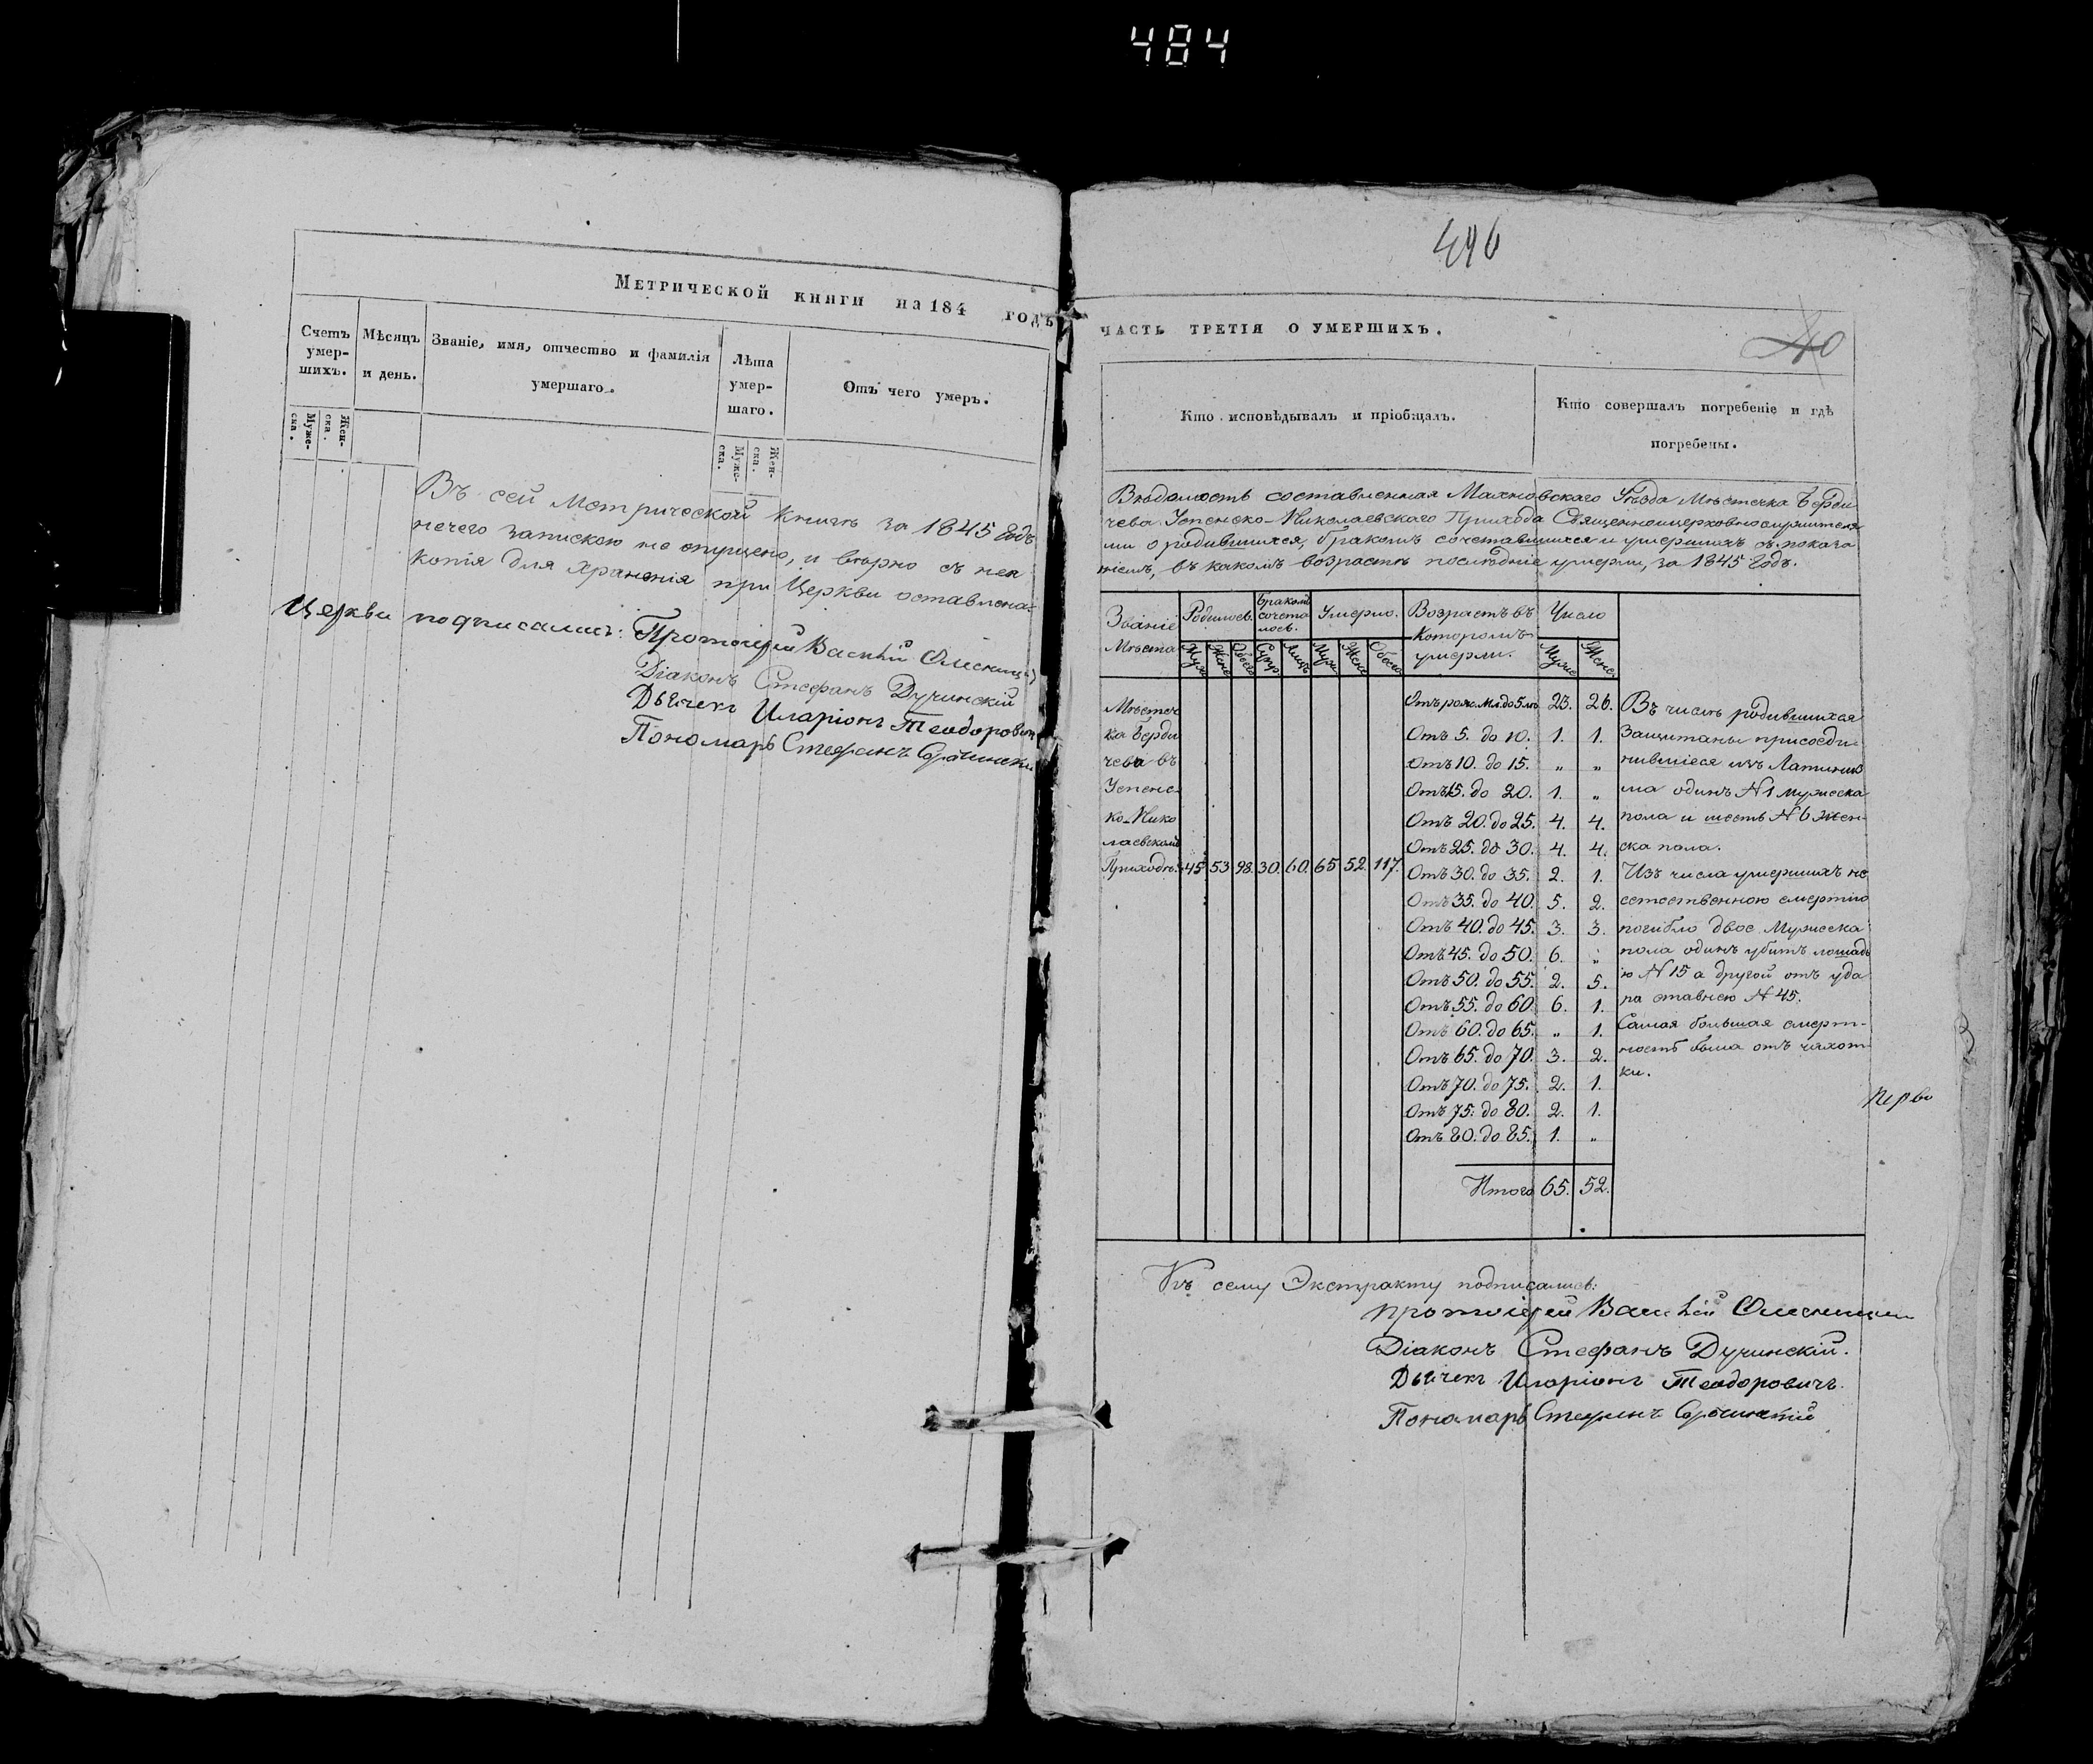 484
Метрической книги на 184 годъ
Счетъ умер-шихъ.
Муже-ска.
Жен-ска.
Мѣсяцъ и день.
Званіе, имя, отчество и фамилія умершаго.
Лѣта умер-шаго.
Муже-ска.
Жен-ска.
Отъ чего умеръ.
Въ сей Метрической Книгѣ за 1845 Годъ
нечего запискою не опущено, и вѣрно съ нея
копія для Храненія при Церкви оставлена:
Церкви подписались: Протоіерей Василій
Діаконъ Стефанъ Дучинскій
Дьячекъ Иларіонъ Теодоровичъ
Пономарь Стефанъ
496
40
часть третія о умершихъ.
Кто исповѣдывалъ и пріобщалъ.
Кто совершалъ погребеніе и гдѣ погребены.
Вѣдомость составленная Махновскаго Уѣзда Мѣстечка Берди
чева Успенско-Николаевскаго Прихода Священноцерковнослужителя
ми о родившихся, бракомъ сочетавшихся и умершихъ съ показа
ніемъ, въ какомъ возрастѣ послѣдніе умерли, за 1845 Годъ.
Званіе Мѣста
Родилось.
Муж
Жене
Обоего
Бракомъ сочета лось.
Супр
Лицъ
Умерло.
Муж
Жене
Обоего
Возрастъ въ которомъ умерли.
Число
Муже
Жене
Мѣстеч
ка Берди
чева въ
Успенс
ко-Нико
лаевскомъ
Приходѣ. 45 53 98. 30. 60. 65 52. 117.
Отъ рож. мл. до 5 лѣ 23. 26.
Отъ 5. до 10. 1. 1.
Отъ 10. до 15. „ „
Отъ 15. до 20. 1. „
Отъ 20. до 25. 4. 4.
Отъ 25. до 30. 4. 4.
Отъ 30. до 35. 2. 1.
Отъ 35. до 40. 5. 2.
Отъ 40. до 45. 3. 3.
Отъ 45. до 50. 6. „
Отъ 50. до 55. 2. 5.
Отъ 55. до 60. 6. 1.
Отъ 60. до 65. „ 1.
Отъ 65. до 70. 3. 2.
Отъ 70. до 75. 2. 1.
Отъ 75. до 80. 2. 1.
Отъ 80. до 85. 1. „
Итого 65. 52.
Въ числѣ родившихся
Защитаны присоеди-
нившіеся изъ Латиниз
ма одинъ N 1 мужеска
пола и шесть N 6 жен-
ска пола.
Изъ числа умершихъ не
естественною смертію
погибло двое Мужеска
пола одинъ убитъ лошадь
ю N 15 а другой отъ уда
ра ставнею N 45.
Самая большая смерт-
ность была отъ чахот-
ки.
Церкв
Къ сему Экстракту подписались:
Протоіерей Василій
Діаконъ Стефанъ Дучинскій.
Дьячекъ Иларіонъ Теодоровичъ.
Пономарь Стефанъ